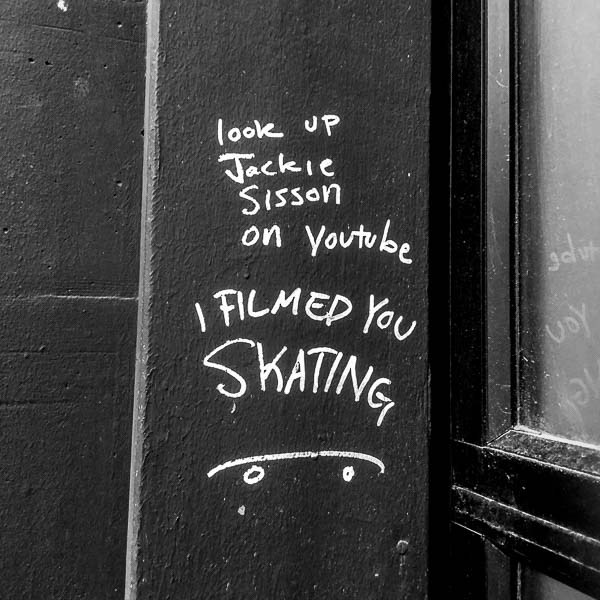 look up
Jackie
Sisson
on Youtube
I FILMED YOU
SKATING